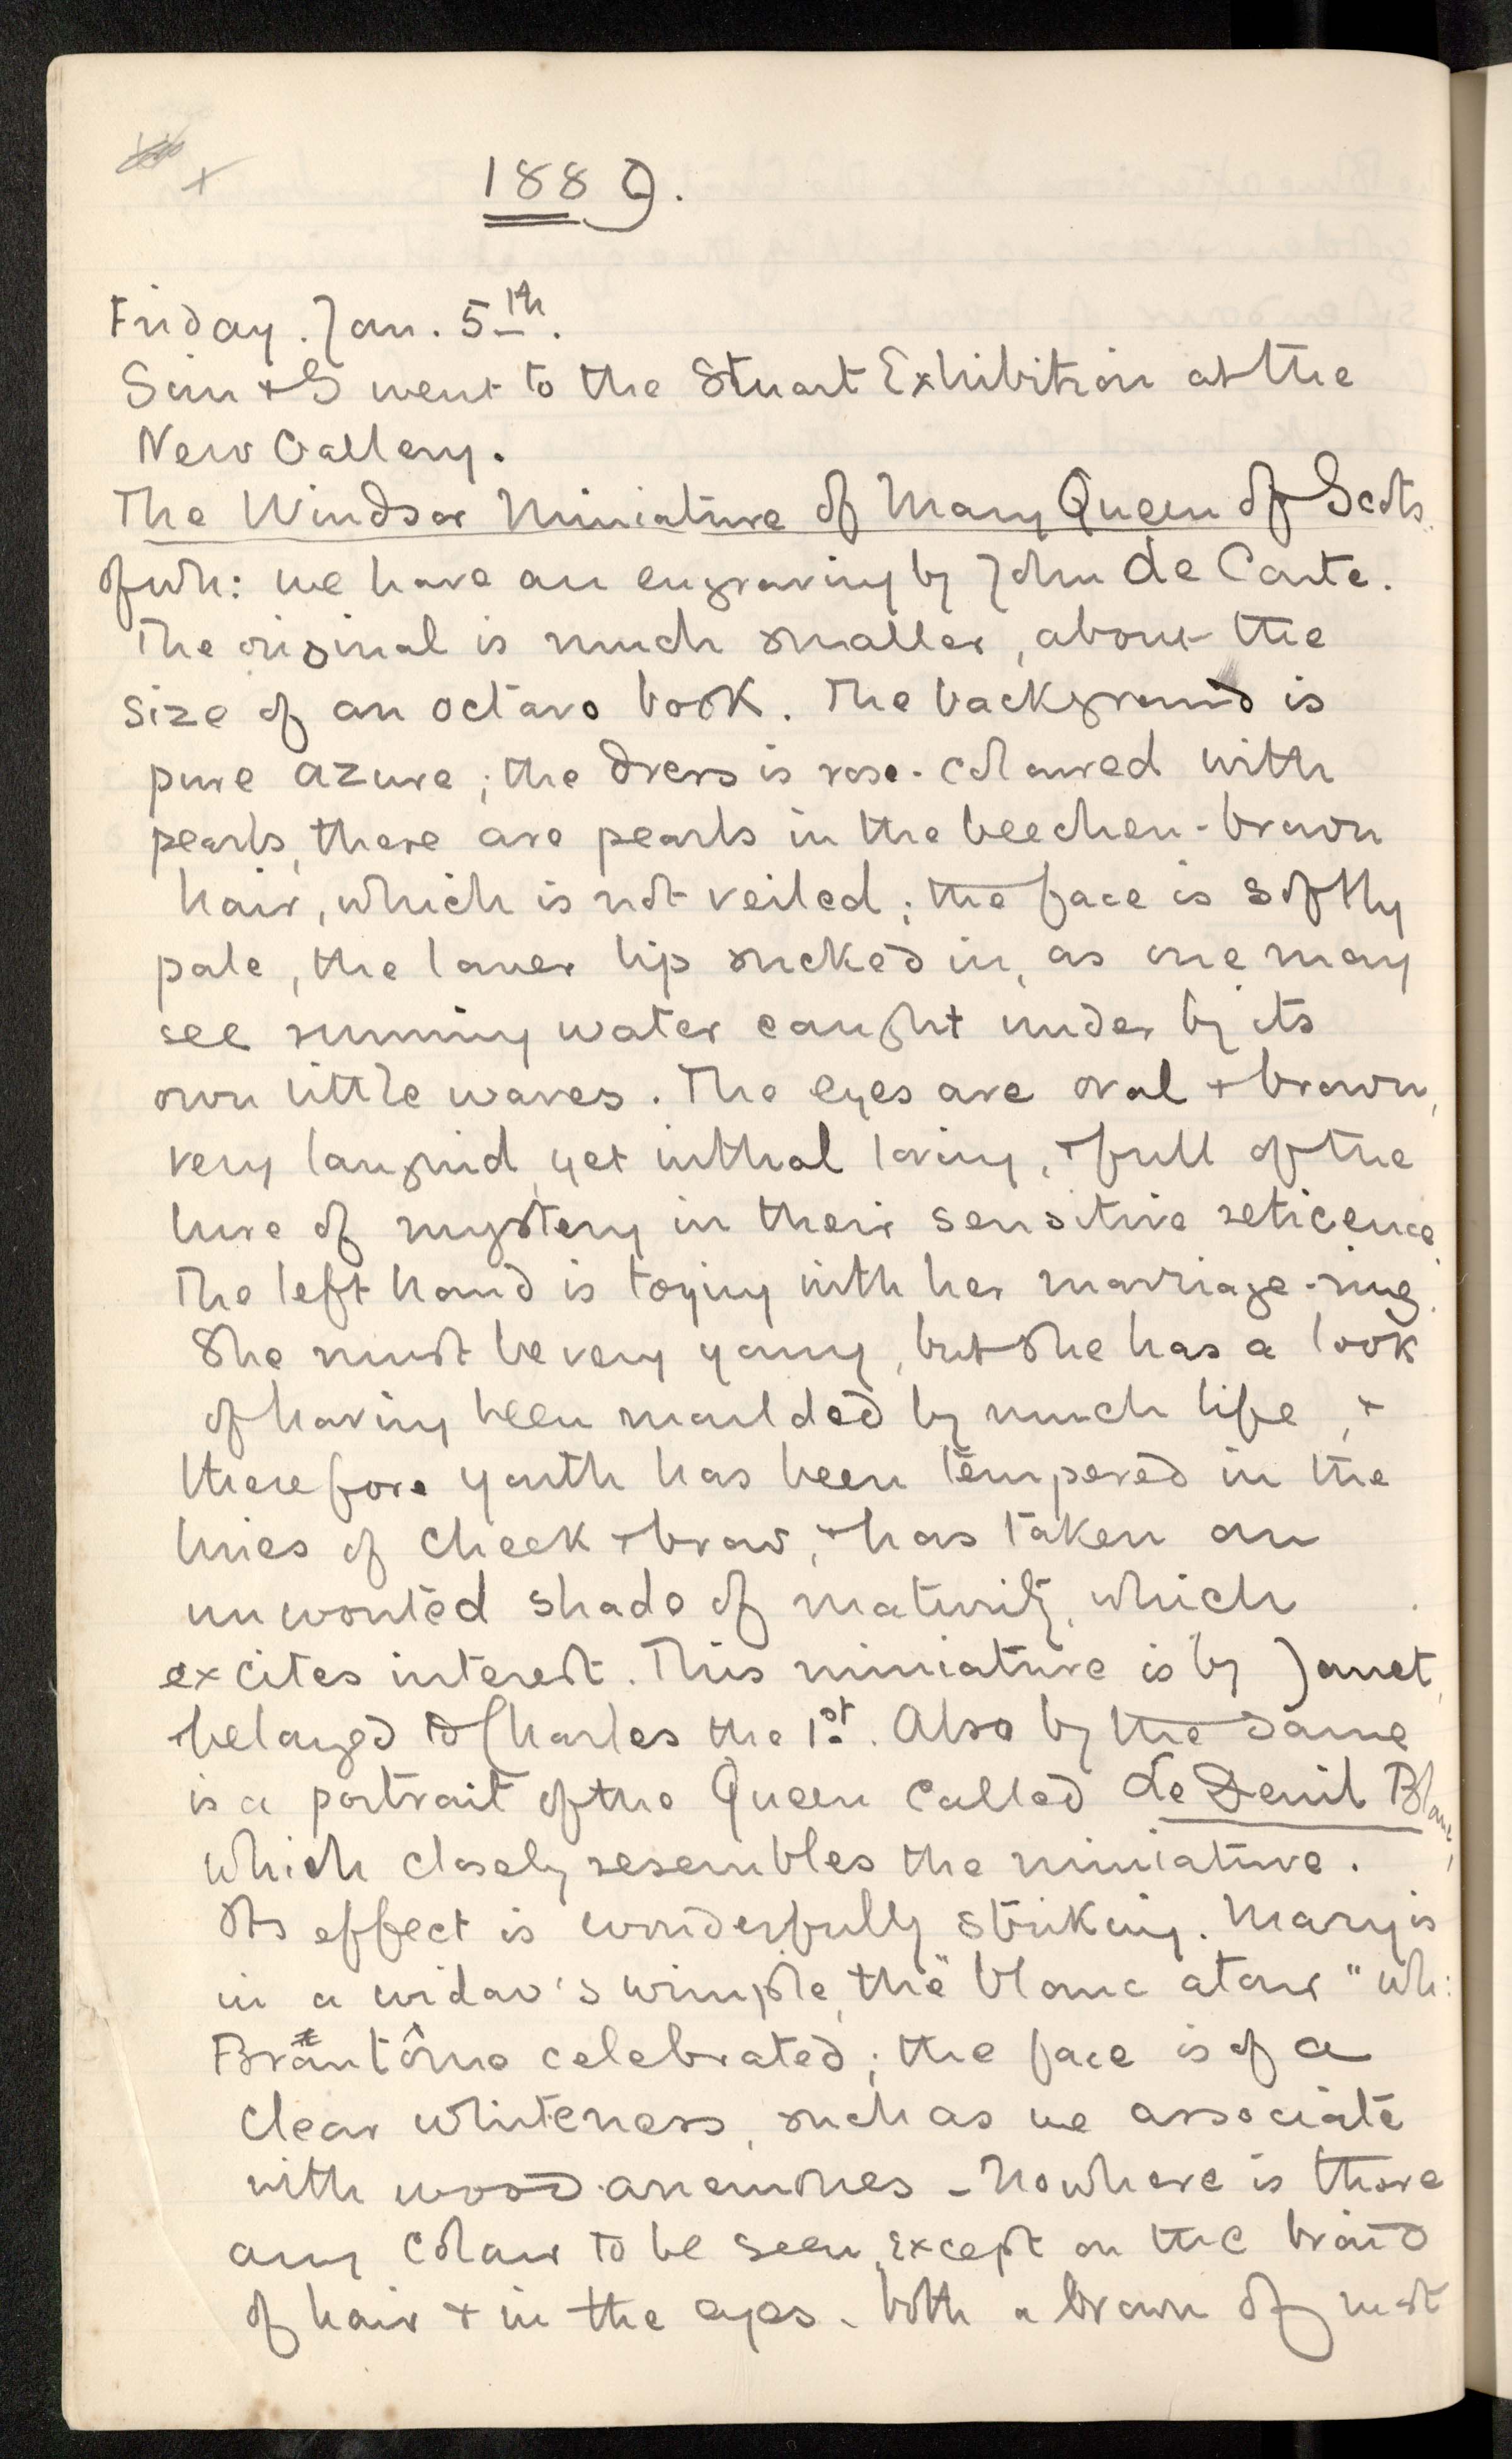 1889.
Friday. Jan. 5th.
Sim + S went to the Stuart Exhibition at the
New Gallery.
The Windsor Miniature of Mary Queen of Scots.
of wh: we have an engraving by John de Carte.
The original is much smaller, about the
size of an octavo book. The background is
pure azure; the dress is rose-coloured with
pearls, there are pearls in the beechen-brown
hair, which is not veiled; the face is softly
pale, the lower lip sucked in, as one may
see running water caught under by its
own little waves. The eyes are oval + brown,
very languid, yet withal loving, + full of the
lure of mystery in their sensitive reticence.
The left hand is toying with her marriage-ring.
She must be very young, but she has a look
of having been moulded by much life, +
therefore youth has been tempered in the
lines of cheek + brow, + has taken an
unwonted shade of maturity, which
excites interest. This miniature is by Janet,
+ belonged to Charles the 1st. Also by the same
is a portrait of the Queen called de Deuil Blanc,
which closely resembles the miniature.
Its effect is wonderfully striking. Mary is
in a widow's wimple, the "blanc atour" wh:
Brantôme celebrated; the face is of a
clear whiteness, such as we associate
with wood-anemones - Nowhere is there
any colour to be seen, except on the braid
of hair + in the eyes. both a brown of